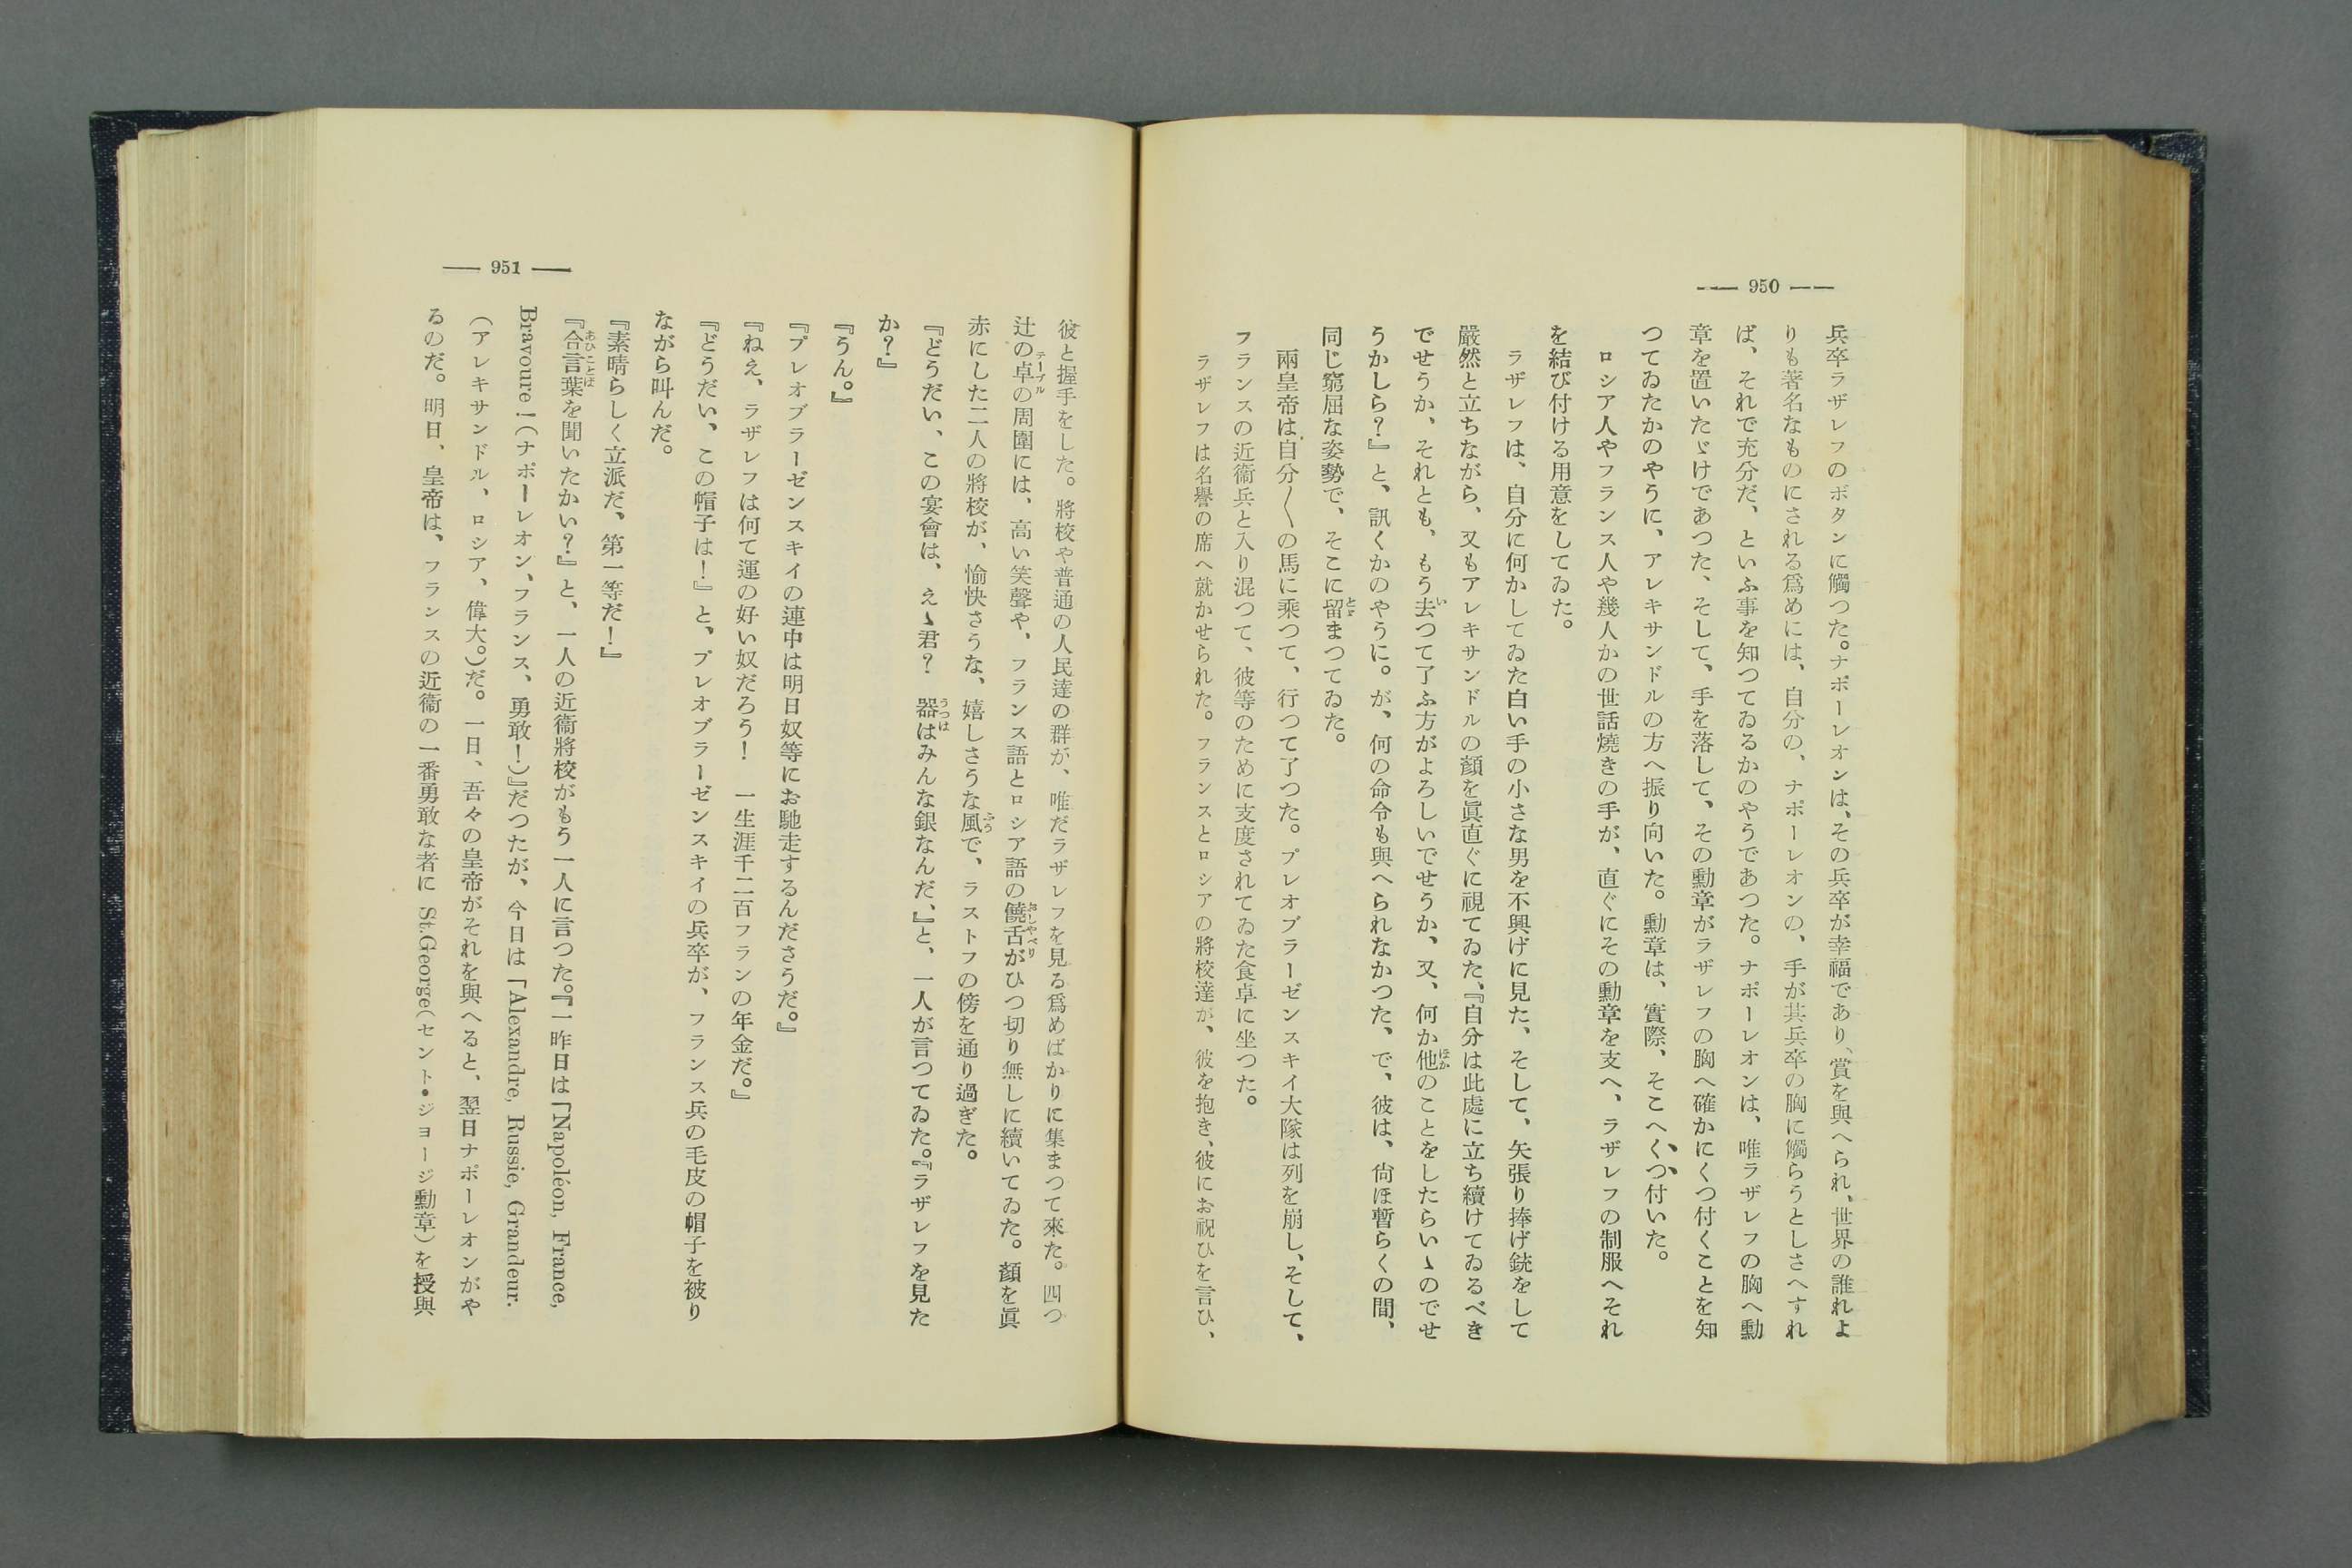 — 950 —
兵卒ラザレフのボタンに觸つた。ナポーレオンは、その兵卒が幸福であり、賞を與へられ、世界の誰れよ
りも著名なものにされる爲めには、自分の、ナポーレオンの、手が其兵卒の胸に觸らうとしさへすれ
ば、それで充分だ、といふ事を知つてゐるかのやうであつた。ナポーレオンは、唯ラザレフの胸へ勳
章を置いたゞけであつた、そして、手を落して、その勳章がラザレフの胸へ確かにくつ付くことを知
つてゐたかのやうに、アレキサンドルの方へ振り向いた。勳章は、實際、そこへくつ付いた。
ロシア人やフランス人や幾人かの世話燒きの手が、直ぐにその勳章を支へ、ラザレフの制服へそれ
を結び付ける用意をしてゐた。
ラザレフは、自分に何かしてゐた白い手の小さな男を不興げに見た、そして、矢張り捧げ銃をして
嚴然と立ちながら、又もアレキサンドルの顏を眞直ぐに視てゐた、『自分は此處に立ち續けてゐるべき
でせうか、それとも、もう去つて了ふ方がよろしいでせうか、又、何か他のことをしたらいゝのでせ
うかしら？』と、訊くかのやうに。が、何の命令も與へられなかつた、で、彼は、尙ほ暫らくの間、
同じ窮屈な姿勢で、そこに留まつてゐた。
兩皇帝は自分〱の馬に乘つて、行つて了つた。プレオブラーゼンスキイ大隊は列を崩し、そして、
フランスの近衞兵と入り混つて、彼等のために支度されてゐた食卓に坐つた。
ラザレフは名譽の席へ就かせられた。フランスとロシアの將校達が、彼を抱き、彼にお祝ひを言ひ、
— 951 —
彼と握手をした。將校や普通の人民達の群が、唯だラザレフを見る爲めばかりに集まつて來た。四つ
辻の卓の周圍には、高い笑聲や、フランス語とロシア語の饒舌がひつ切り無しに續いてゐた。顏を眞
赤にした二人の將校が、愉快さうな、嬉しさうな風で、ラストフの傍を通り過ぎた。
『どうだい、この宴會は、えゝ君？　器はみんな銀なんだ、』と、一人が言つてゐた。『ラザレフを見た
か？』
『うん。』
『プレオブラーゼンスキイの連中は明日奴等にお馳走するんださうだ。』
『ねえ、ラザレフは何て運の好い奴だろう！　一生涯千二百フランの年金だ。』
『どうだい、この帽子は！』と、プレオブラーゼンスキイの兵卒が、フランス兵の毛皮の帽子を被り
ながら叫んだ。
『素晴らしく立派だ、第一等だ！』
『合言葉を聞いたかい？』と、一人の近衞將校がもう一人に言つた。『一昨日は「Napoléon, France,
Bravoure！(ナポーレオン、フランス、勇敢！)』だつたが、今日は「Alexandre, Russie, Grandeur.
(アレキサンドル、ロシア、偉大。)だ。一日、吾々の皇帝がそれを與へると、翌日ナポーレオンがや
るのだ。明日、皇帝は、フランスの近衞の一番勇敢な者に St. George(セント・ジョージ勳章)を授與